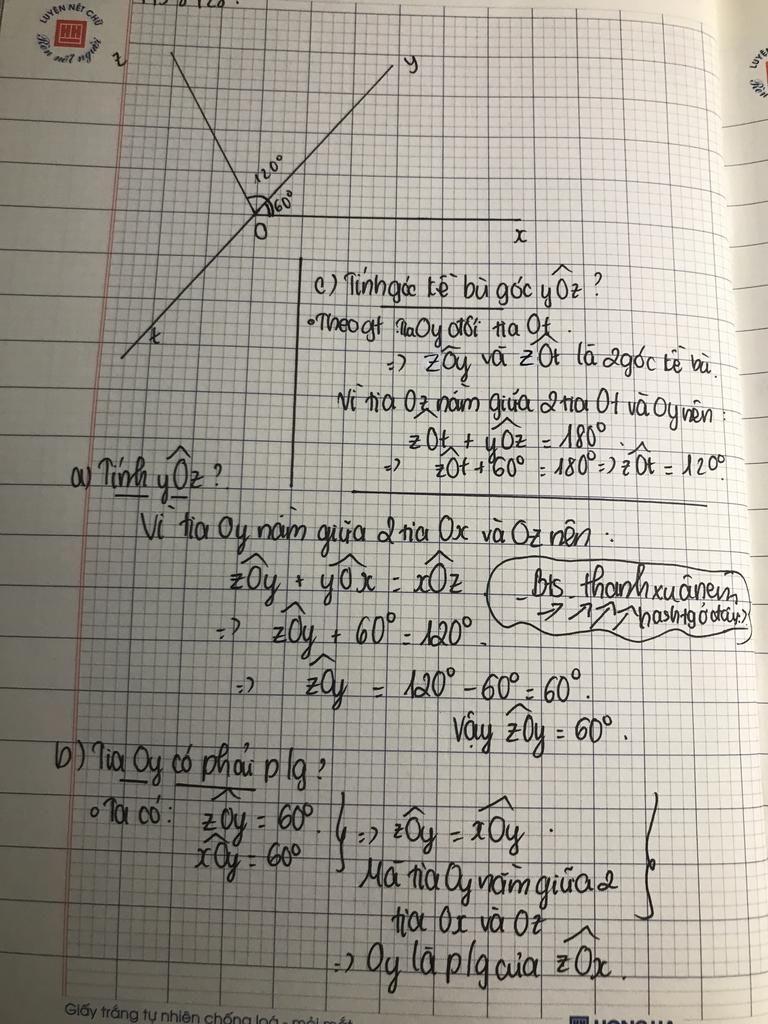 LUYỆN NÉT CHỮ
HH
Rèn nết người
z
y
120°
60°
O
x
t
c) Tính góc kề bù góc yÔz ?
• Theo gt tia Oy đối tia Ot.
=> zÔy và zÔt là 2 góc kề bù.
Vì tia Oz nằm giữa 2 tia Ot và Oy nên :
zÔt + yÔz = 180°.
=> zÔt + 60° = 180° => zÔt = 120°.
a) Tính yÔz ?
Vì tia Oy nằm giữa 2 tia Ox và Oz nên :
zÔy + yÔx = xÔz
=> zÔy + 60° = 120°.
=> zÔy = 120° - 60° = 60°.
Vậy zÔy = 60°.
_Bts_thanhxuânem
→ ↗ ↗ ↗ hashtg ở đây:)
b) Tia Oy có phải plg ?
• Ta có : zÔy = 60°.
xÔy = 60°
=> zÔy = xÔy.
Mà tia Oy nằm giữa 2
tia Ox và Oz
=> Oy là plg của zÔx.
Giấy trắng tự nhiên chống loá - mỏi mắt
HONG HA